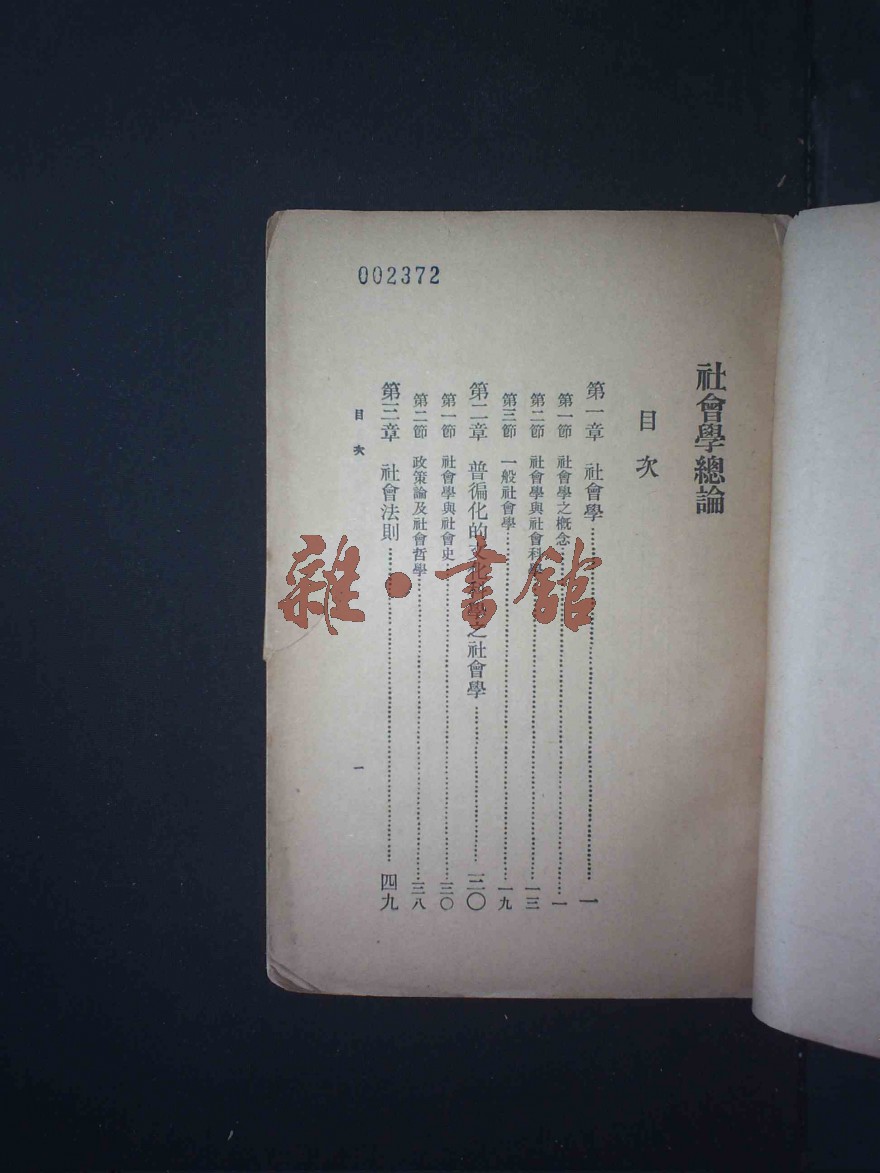 002372
社會學總論
目次
第一章 社會學……一
第一節 社會學之概念……一
第二節 社會學與社會科學……一三
第三節 一般社會學……一九
第二章 普徧化的文化科學之社會學……三〇
第一節 社會學與社會史……三〇
第二節 政策論及社會哲學……三八
第三章 社會法則……四九
目次 一
雜·書館